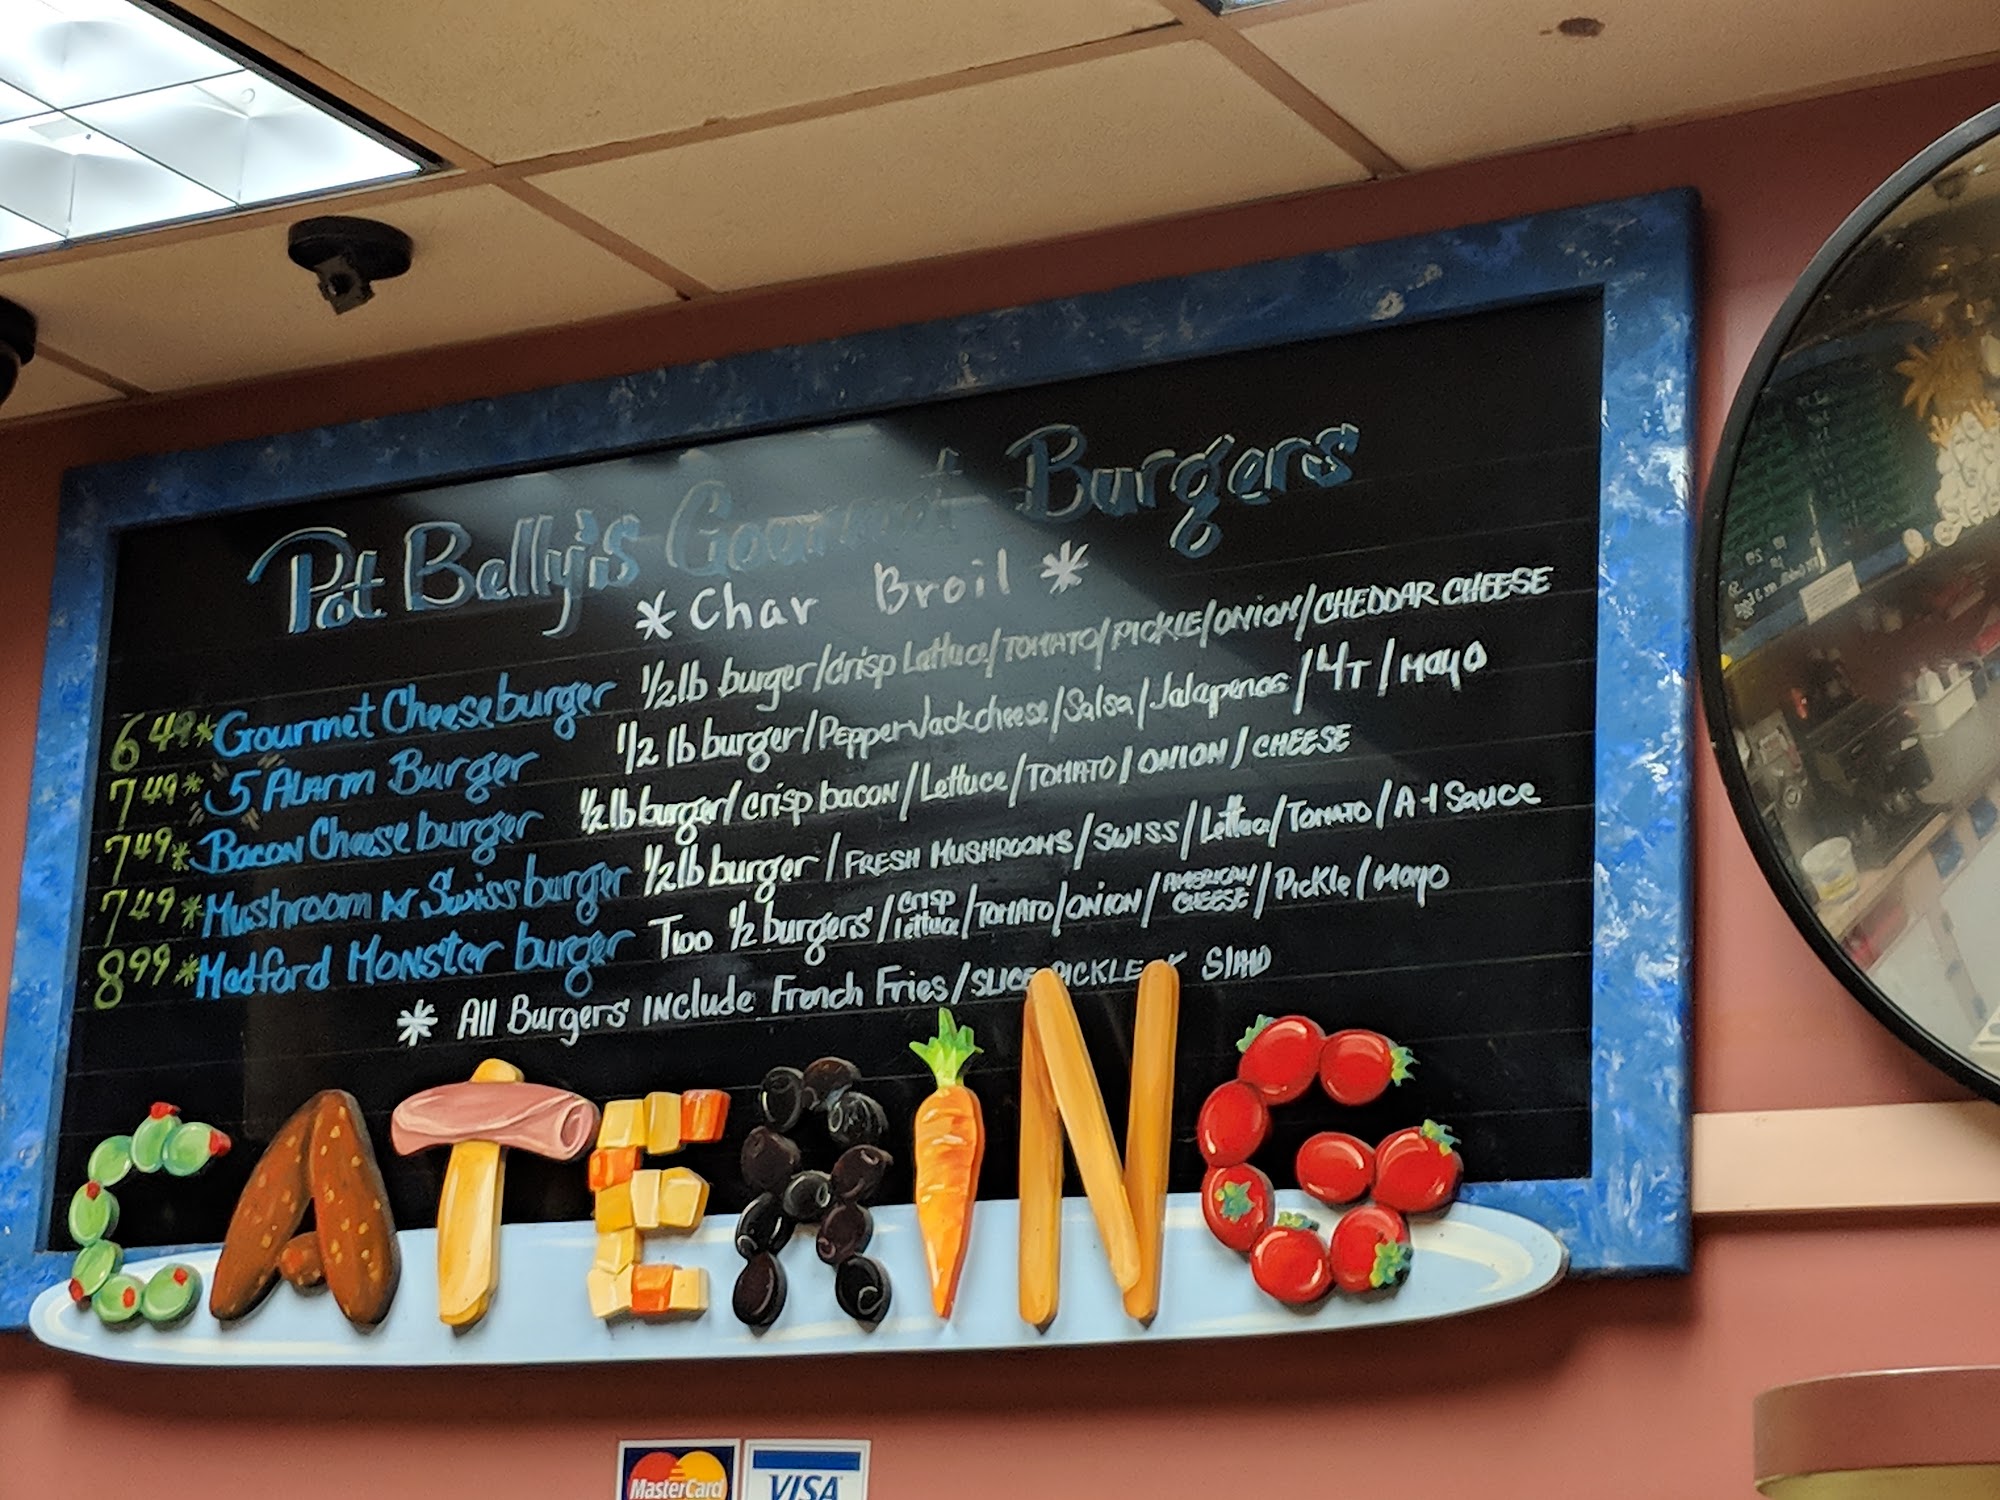 Pot Belly's Gourmet Burgers
*Char Broil*
6 49 * Gourmet Cheeseburger 1/2 lb burger/crisp Lettuce/TOMATO/PICKLE/ONION/CHEDDAR CHEESE
7 49 * "5 Alarm Burger 1/2 lb burger/Pepper Jack cheese/Salsa/Jalapenos/L/T/MAYO
7 49 * Bacon Cheese burger 1/2 lb burger/crisp bacon/Lettuce/TOMATO/ONION/CHEESE
7 49 * Mushroom Swiss burger 1/2 lb burger/FRESH MUSHROOMS/SWISS/Lettuce/TOMATO/A-1 Sauce
8 99 * Medford Monster burger Two 1/2 burgers/crisp lettuce/TOMATO/ONION/AMERICAN CHEESE/Pickle/Mayo
* All Burgers INclude French Fries/SLICE PICKLE Slaw
CATERING
MasterCard VISA